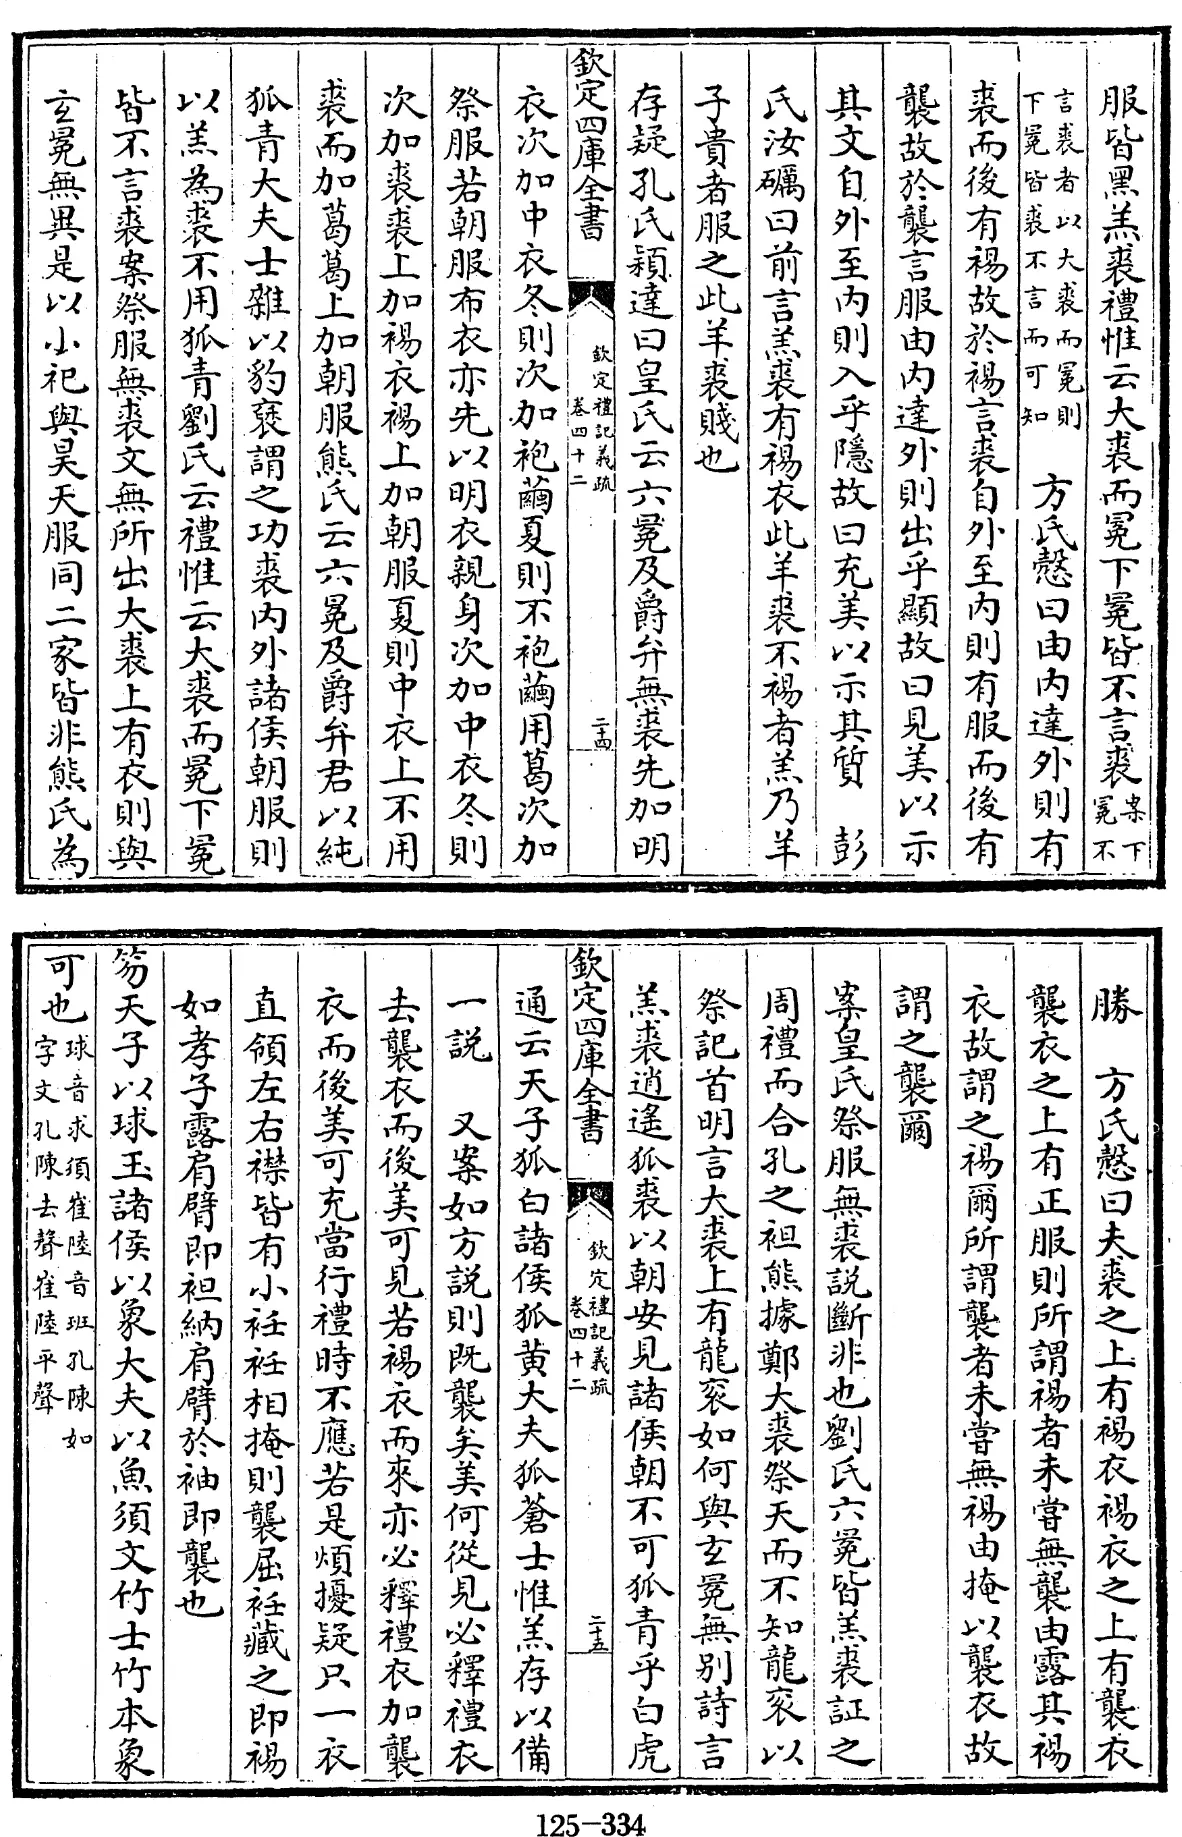 服皆黑羔裘禮惟云大裘而冕下冕皆不言裘案下冕不
言裘者以大裘而冕則下冕皆裘不言而可知　方氏慤曰由内達外則有
裘而後有裼故於裼言裘自外至内則有服而後有
襲故於襲言服由内達外則出乎顯故曰見美以示
其文自外至内則入乎隱故曰充美以示其質　彭
氏汝礪曰前言羔裘有裼衣此羊裘不裼者羔乃羊
子貴者服之此羊裘賤也
存疑孔氏穎達曰皇氏云六冕及爵弁無裘先加明
欽定四庫全書　欽定禮記義疏卷四十二　二十四
衣次加中衣冬則次加袍繭夏則不袍繭用葛次加
祭服若朝服布衣亦先以明衣親身次加中衣冬則
次加裘裘上加裼衣裼上加朝服夏則中衣上不用
裘而加葛葛上加朝服熊氏云六冕及爵弁君以純
狐青大夫士雜以豹褎謂之功裘内外諸侯朝服則
以羔為裘不用狐青劉氏云禮惟云大裘而冕下冕
皆不言裘案祭服無裘文無所出大裘上有衣則與
玄冕無異是以小祀與昊天服同二家皆非熊氏為
勝　方氏慤曰夫裘之上有裼衣裼衣之上有襲衣
襲衣之上有正服則所謂裼者未嘗無襲由露其裼
衣故謂之裼爾所謂襲者未嘗無裼由掩以襲衣故
謂之襲爾
案皇氏祭服無裘説斷非也劉氏六冕皆羔裘証之
周禮而合孔之袒熊據鄭大裘祭天而不知龍衮以
祭記首明言大裘上有龍衮如何與玄冕無别詩言
羔裘逍遥狐裘以朝安見諸侯朝不可狐青乎白虎
欽定四庫全書　欽定禮記義疏卷四十二　二十五
通云天子狐白諸侯狐黄大夫狐蒼士惟羔存以備
一説　又案如方説則既襲矣美何從見必釋禮衣
去襲衣而後美可見若裼衣而來亦必釋禮衣加襲
衣而後美可充當行禮時不應若是煩擾疑只一衣
直領左右襟皆有小衽衽相掩則襲屈衽藏之即裼
如孝子露肩臂即袒納肩臂於袖即襲也
笏天子以球玉諸侯以象大夫以魚須文竹士竹本象
可也球音求須崔陸音班孔陳如字文孔陳去聲崔陸平聲
125-334